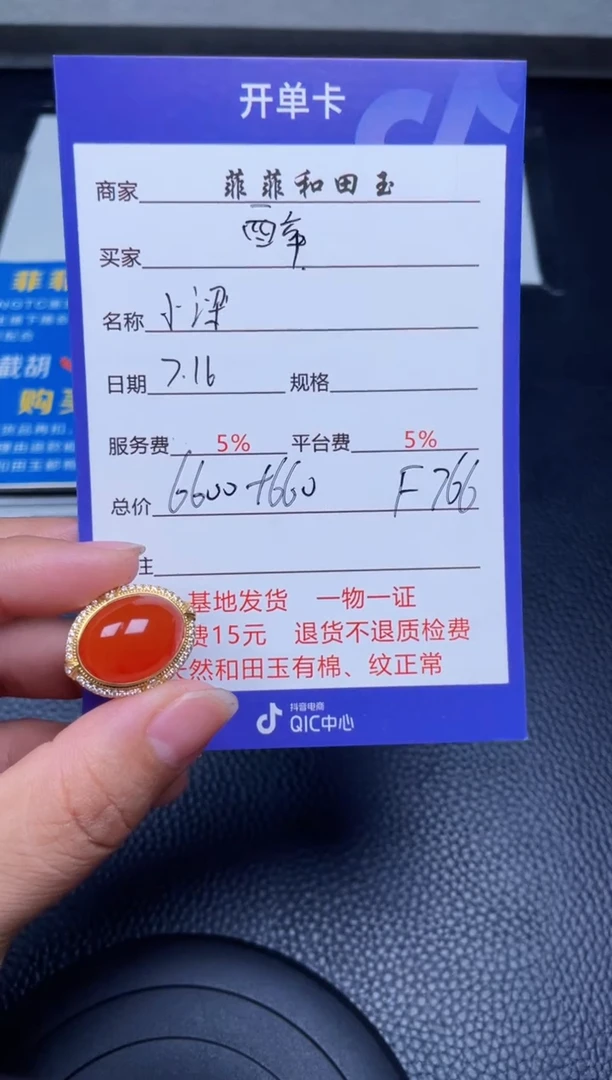 开单卡
商家 菲菲和田玉
买家 四章
名称 小梁
日期 7.16 规格
服务费 5% 平台费 5%
总价 6600+660 F766
注
基地发货 一物一证
费15元 退货不退质检费
然和田玉有棉、纹正常
抖音电商
QIC中心
菲菲
截胡
购买